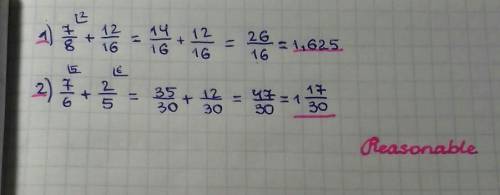 1) 7/8 ⌊2 + 12/16 = 14/16 + 12/16 = 26/16 = 1,625
2) 7/6 ⌊5 + 2/5 ⌊6 = 35/30 + 12/30 = 47/30 = 1 17/30
Reasonable